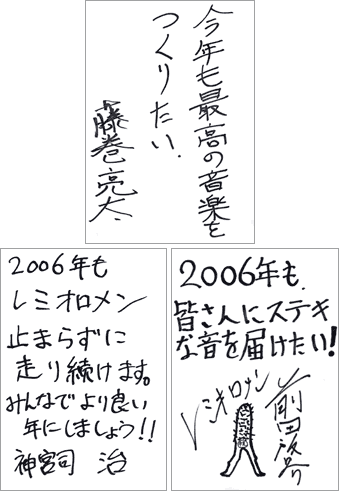 今年も最高の音楽を
つくりたい.
藤巻亮太.
2006年も
レミオロメン
止まらずに
走り続けます。
みんなでより良い
年にしましょう!!
神宮司 治
2006年も.
皆さんにステキ
な音を届けたい!
レミオロメン
前田啓介